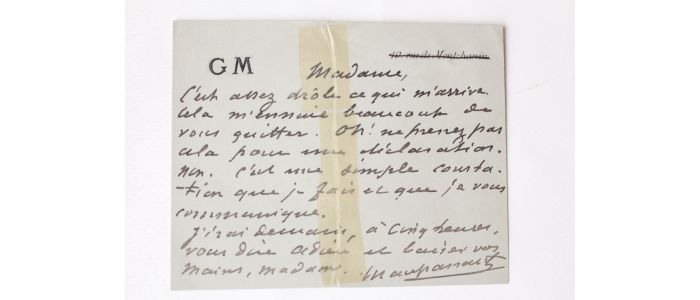 GM
10, rue de Montchanin
Madame,
C'est assez drôle ce qui m'arrive.
Cela m'ennuie beaucoup de
vous quitter. Oh! ne prenez pas
cela pour une déclaration.
Non. C'est une simple consta-
tion que je fais et que je vous
communique.
J'irai demain, à cinq heures,
vous dire adieu et baiser vos
mains, madame. Maupassant